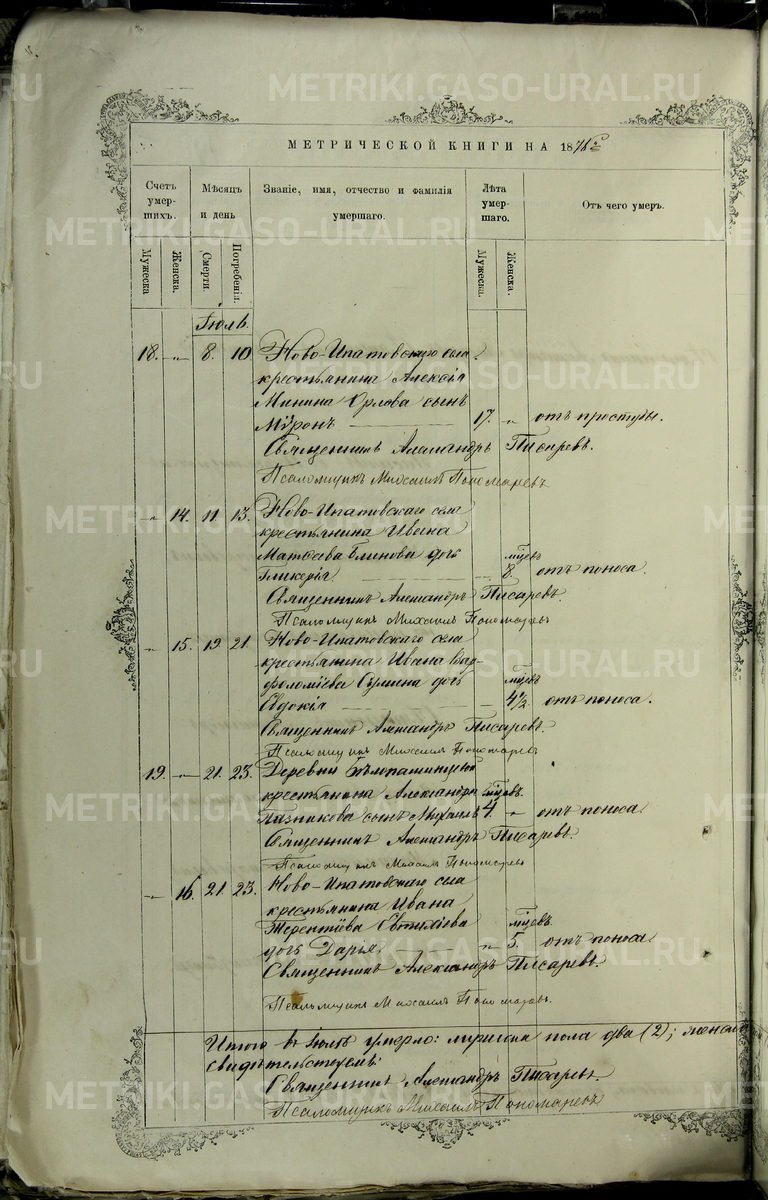 МЕТРИЧЕСКОЙ КНИГИ НА 18
Счетъ умер-шихъ.
Мѣсяцъ и день
Званіе, имя, отчество и фамилія умершаго.
Лѣта умер-шаго.
Отъ чего умеръ.
Мужеска
Женска.
Смерти.
Погребенія.
Мужеска.
Женска.
Іюль.
18. „ 8. 10 Ново-Ипатовскаго села
крестьянина Алексія
Минина Орлова сынъ
Мѵронъ 17. „ отъ простуды.
Священникъ Александръ Писаревъ.
Псаломщикъ Михаилъ Пономаревъ
„ 14. 11. 13. Ново-Ипатовскаго села
крестьянина Ивана
Матѳеева Блинова дочь мцевъ
Гликерія 8. отъ поноса.
Священникъ Александръ Писаревъ
Псаломщикъ Михаилъ Пономаревъ
„ 15. 19 21. Ново-Ипатовскаго села
крестьянина Ивана Вар-
фоломіева дочь мцевъ
Евдокія 4½ отъ поноса.
Священникъ Александръ Писаревъ.
Псаломщикъ Михаилъ Пономаревъ
19. „ 21. 23. Деревни
крестьянина Александра мцевъ.
сынъ Михаилъ 4. „ отъ поноса
Священникъ Александръ Писаревъ.
Псаломщикъ Михаилъ Пономаревъ
„ 16. 21. 23. Ново-Ипатовскаго села
крестьянина Ивана
Терентіева мцевъ.
дочь Дарья „ 5. отъ поноса.
Священникъ Александръ Писаревъ.
Псаломщикъ Михаилъ Пономаревъ.
Итого въ Іюлѣ умерло: пола два (2); женска
Священникъ Александръ Писаревъ.
Псаломщикъ Михаилъ Пономаревъ
METRIKI.GASO-URAL.RU